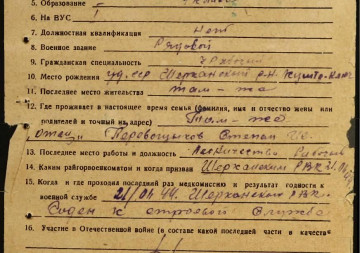 5. Образование
6. На ВУС
7. Должностная квалификация нет
8. Военное звание Рядовой
9. Гражданская специальность
10. Место рождения Удм. ССР Шарканский р-н
11. Последнее место жительства там-же
12. Где проживает в настоящее время семья (фамилия, имя и отчество жены или
родителей и точный адрес) Там-же
отец Перевощиков Степан
13. Последнее место работы и должность Рабочий
14. Каким райгорвоенкоматом и когда призван Шарканским РВК
15. Когда и где проходил последний раз медкомиссию и результат годности к
военной службе 21/01 44. Шарканском РВК
Годен к строевой Служба
16. Участие в Отечественной войне (в составе какой последней части и качестве